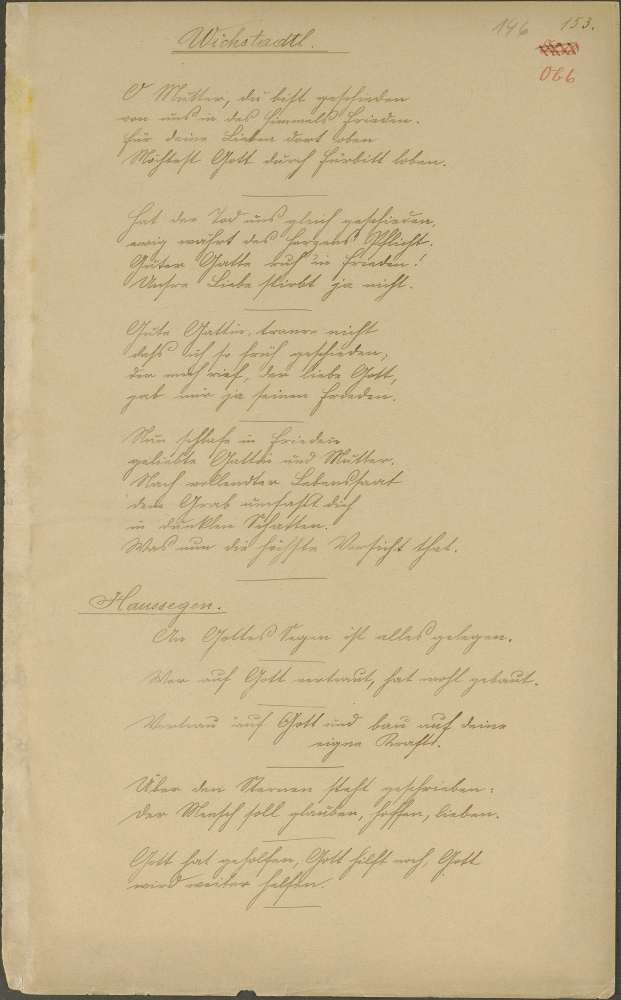 146 153.
066
Wichstadtl.
O Mutter, du bist geschieden
von uns in des Himmels Frieden.
Für deine Lieben dort oben
Möchtest Gott durch Fürbitt loben.
Hat der Tod uns gleich geschieden,
ewig währt des Herzens Pflicht.
Guter Gatte ruh' in Frieden!
Unsre Liebe stirbt ja nicht.
Gute Gattin, traure nicht
daß ich so früh geschieden,
der mich rief, der liebe Gott,
gab mir ja seinen Frieden.
Nun schlafe in Frieden
geliebte Gattin und Mutter.
Nach vollendter Lebenssaat
dein Grab umfaßt dich
in dunklen Schatten.
Was nun die höchste Vorsicht that.
Haussegen.
An Gottes Segen ist alles gelegen.
Wer auf Gott vertraut, hat wohl gebaut.
Vertrau auf Gott und bau auf deine
eigne Kraft.
Über den Sternen steht geschrieben:
Der Mensch soll glauben, hoffen, lieben.
Gott hat geholfen, Gott hilft noch, Gott
wird weiter helfen.